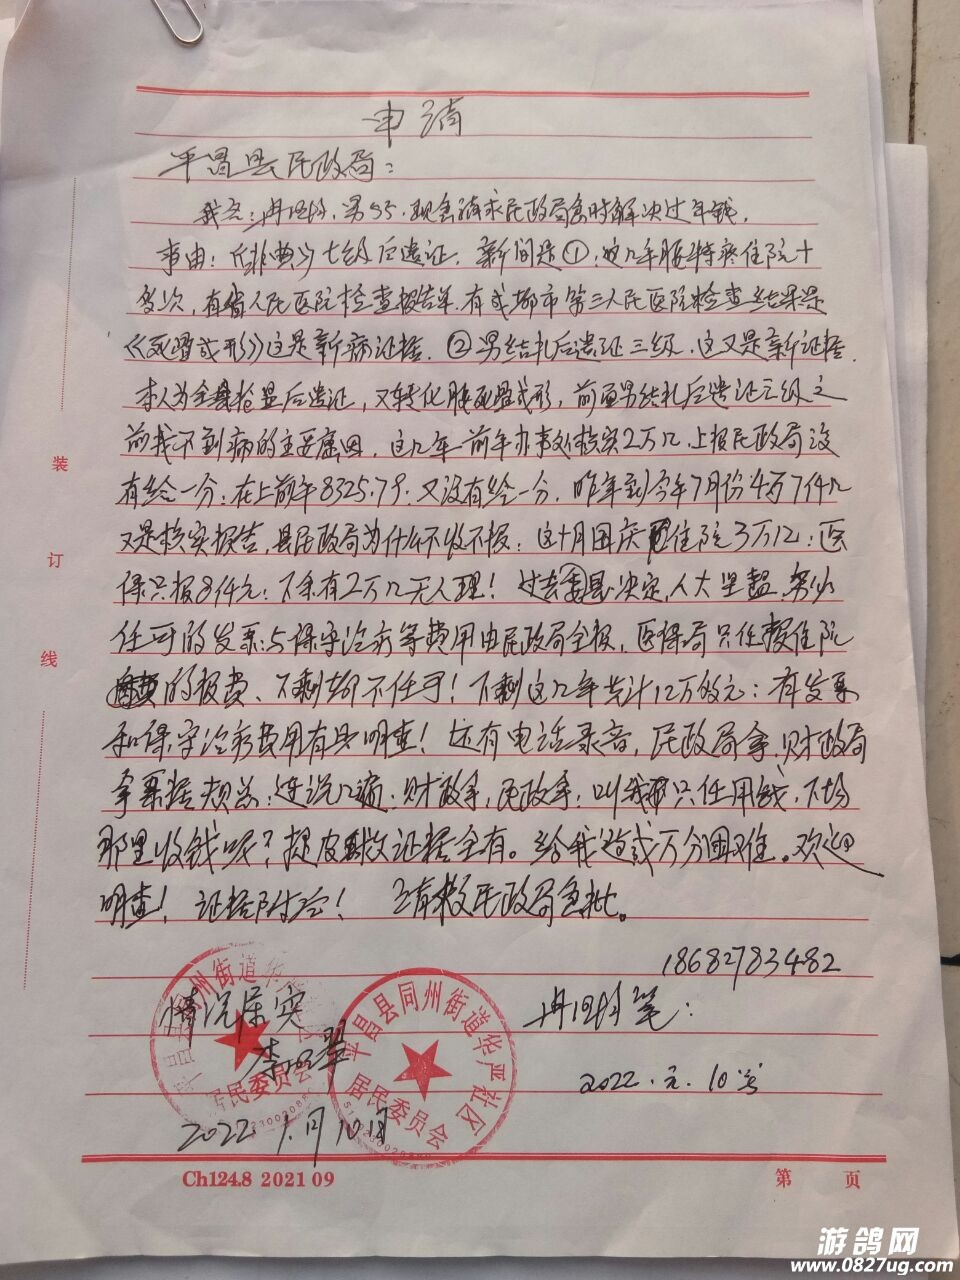 申请
平昌县民政局：
男55.现急请求民政局急时解决过年钱，
事由：七级后遗证，新问是①，这几年腿特疼住院十
多次，有省人民医院检查报告单.有成都市第三人民医院检查结果是
这是新病证据.②男结扎后遗证三级，这又是新证据.
后遗证，又转化前面男结扎后遗证三级之
前找不到病的主要原因，这几年前年办事处核实2万几，上报民政局没
有给一分：在上前年8325.79.又没有给一分，昨年到今年7月份4万7仟几
又是核实报告，县民政局为什么不收不报：这十月国庆住院3万12：医
保只报8仟元：下余有2万几无人理！过去县决定，人大
任可的发票：与保守治病等费用由民政局全报，医保局只任报住院
的报费、下剩都不任可！下剩这几年共计12万多元：有发票
和保守治病费用有处明查！还有电话录音，民政局拿，财政局
拿票据规总：连说几遍：财政拿，民政拿：叫我只任用钱，下场
那里收钱呢？证据全有。给我造成万分困难。欢迎
明查！证据附后！立请民政局急批。
18682783482
笔：
2022.元.10号
情况属实
2022 1.月10日
平昌县同州街道华严社区
居民委员会
平昌县同州街道华严社区
居民委员会
装
订
线
Ch124.8 2021 09
第 页
游鸽网
www.0827ug.com